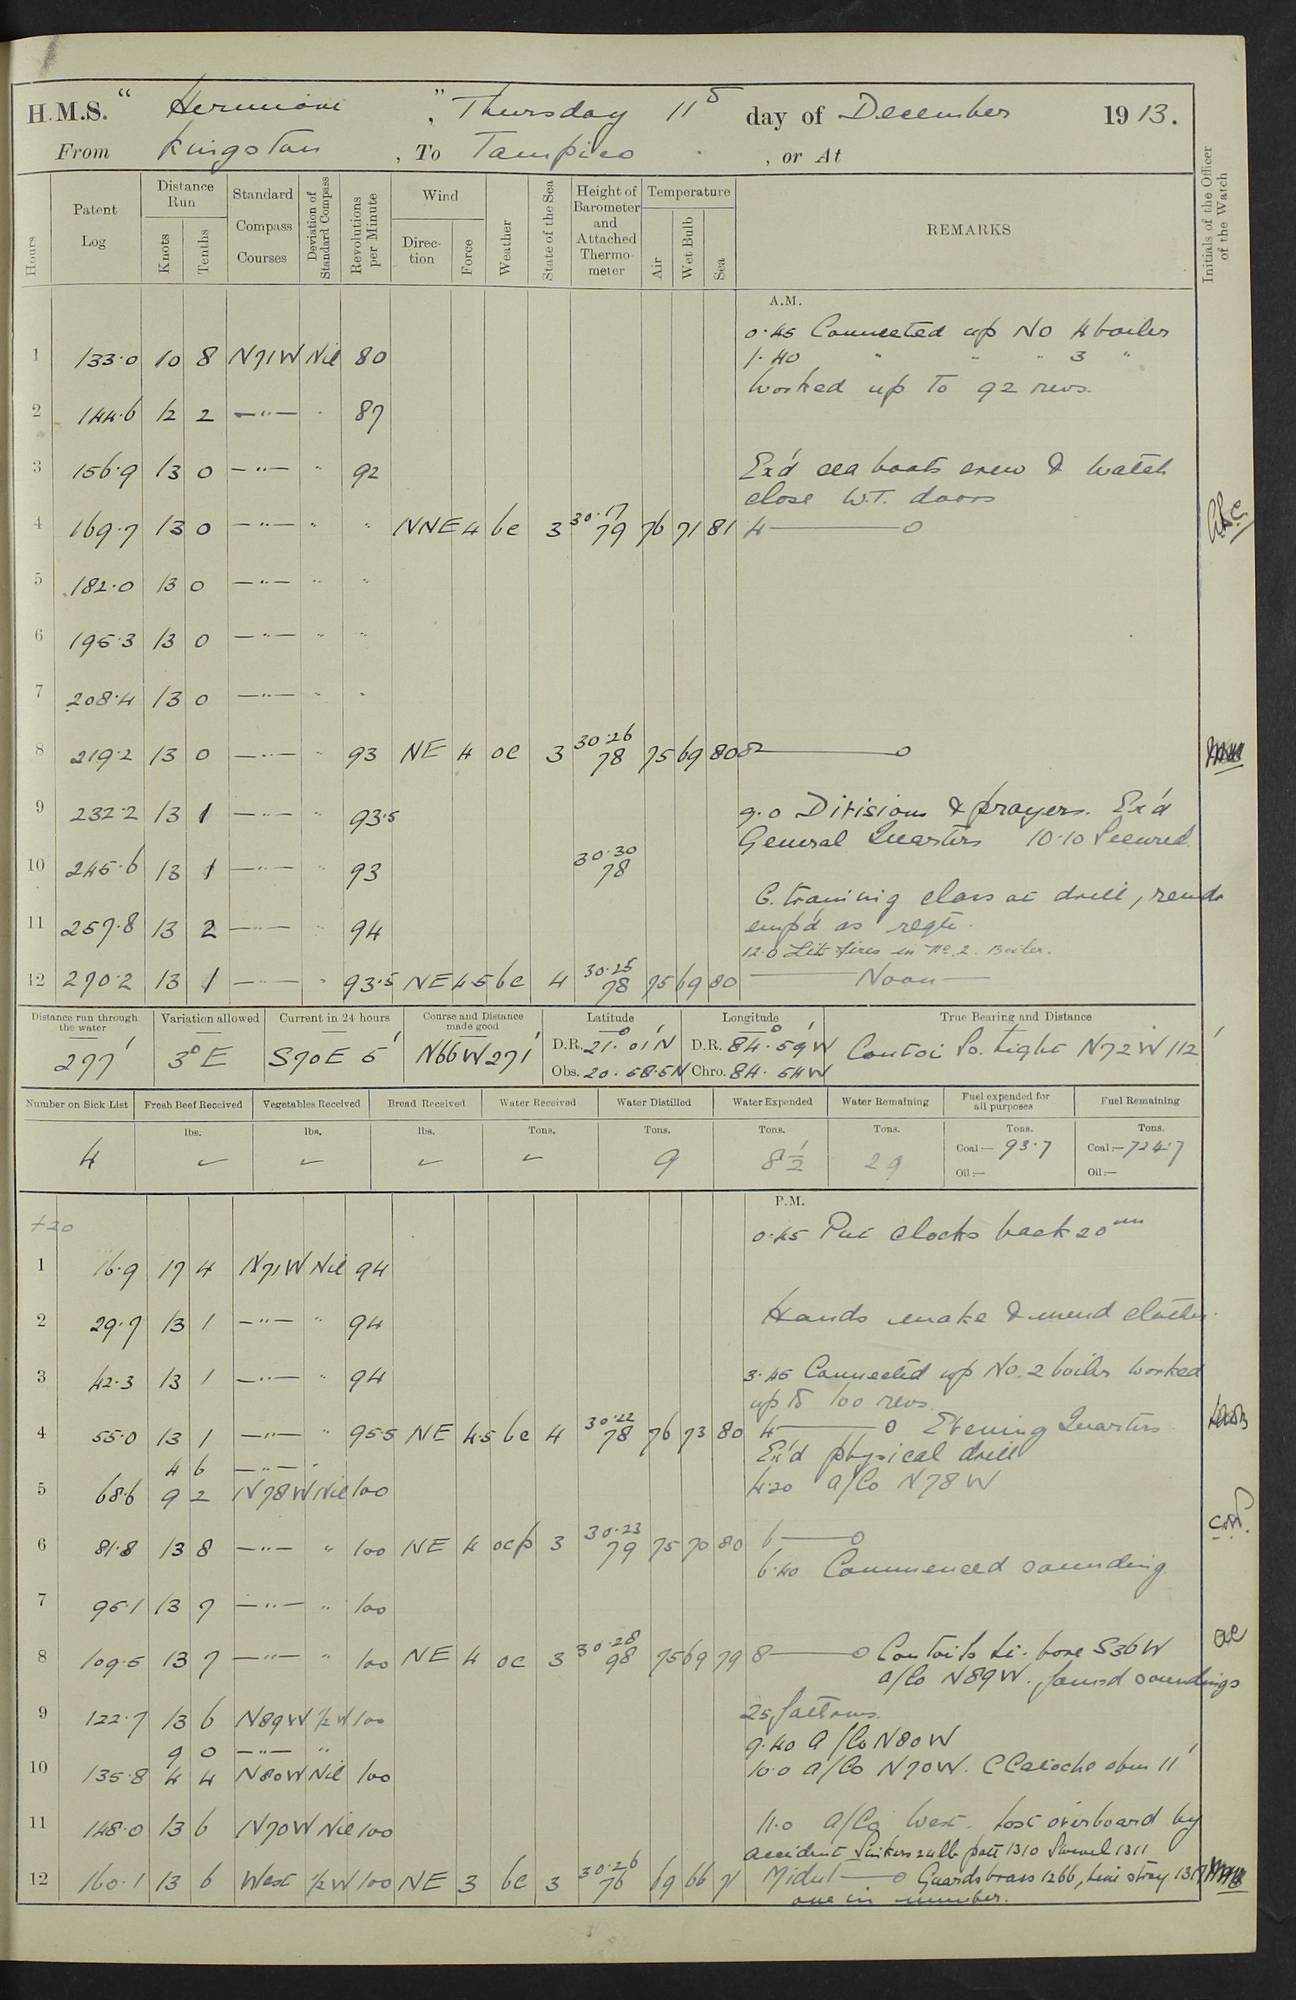 H.M.S. "Hermione", Thursday 11th day of December 1913.
From Kingston, To Tampico, or At
Hours Patent Log Distance Run Knots Tenths Standard Compass Courses Deviation of Standard Compass Revolutions per Minute Wind Direction Force Weather State of the Sea Height of Barometer and Attached Thermometer Temperature Air Wet Bulb Sea REMARKS Initials of the Officer of the Watch
A.M.
0.45 Connected up No 4 boiler
1 133.0 10 8 N71W Nil 80 1.40 " " " 3 "
Worked up to 92 revs.
2 144.6 12 2 —"— " 87
3 156.9 13 0 —"— " 92 Ex'd sea boats crew & watch
close W.T. doors
4 169.7 13 0 —"— " " NNE 4 bc 3 30.17 79 76 71 81 4 ——— 0
5 182.0 13 0 —"— " "
6 195.3 13 0 —"— " "
7 208.4 13 0 —"— " "
8 219.2 13 0 —"— " 93 NE 4 oc 3 30.26 78 75 69 80 8 ——— 0
9 232.2 13 1 —"— " 93.5 9.0 Divisions & prayers. Ex'd
General Quarters 10.10 Secured.
10 245.6 13 1 —"— " 93 30.30 78
G. training class at drill, remdr
11 257.8 13 2 —"— " 94 emp'd as reqte.
12.0 Lit fires in No. 2. Boiler.
12 270.2 13 1 —"— " 93.5 NE 4.5 bc 4 30.25 78 75 69 80 —— Noon ——
Distance run through the water Variation allowed Current in 24 hours Course and Distance made good Latitude Longitude True Bearing and Distance
277' 3°E S70E 5' N66W 271' D.R. 21°.01'N D.R. 84°.59'W Contoi Lo. Light N72W 112'
Obs. 20.58.5N Chro. 84.54W
Number on Sick List Fresh Beef Received Vegetables Received Bread Received Water Received Water Distilled Water Expended Water Remaining Fuel expended for all purposes Fuel Remaining
lbs. lbs. lbs. Tons. Tons. Tons. Tons. Tons. Tons.
4 9 8½ 29 Coal:— 93.7 Coal:— 724.7
Oil:— Oil:—
P.M.
+20 0.45 Put clocks back 20 mn
1 16.9 17 4 N71W Nil 94
2 29.7 13 1 —"— " 94 Hands make & mend clothes.
3 42.3 13 1 —"— " 94 3.45 Connected up No. 2 boiler worked
up to 100 revs.
4 55.0 13 1 —"— " 95.5 NE 4.5 bc 4 30.22 78 76 73 80 4 ——— 0 Evening Quarters
4 6 —"— " Ex'd physical drill
5 68.6 9 2 N78W Nil 100 4.20 a/Co N78W
6 81.8 13 8 —"— " 100 NE 4 ocp 3 30.23 79 75 70 80 6 —— 0
6.40 Commenced sounding.
7 95.1 13 7 —"— " 100
8 109.5 13 7 —"— " 100 NE 4 oc 3 30.28 98 75 69 79 8 ——— 0 Contoi Lo Lt. bore S36W
a/Co N89W. found soundings
9 122.7 13 6 N89W ½W 100 25 fathoms.
9 0 —"— " 9.40 a/Co N80W
10 135.8 4 4 N80W Nil 100 10.0 a/Co N70W. C Catoche abm 11'
11 148.0 13 6 N70W Nil 100 11.0 a/Co West. Lost overboard by
accident Sinkers 24lb patt 1310 Swivel 1311
12 160.1 13 6 West ½W 100 NE 3 bc 3 30.26 76 69 66 71 Midnt —— 0 Guards brass 1266, Line stray 1317
one in number.